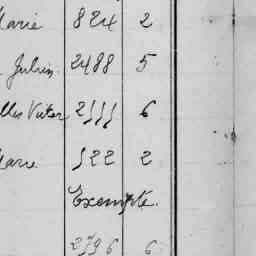 Marie 824 2
Julien 2488 5
Victor 2555 6
Marie 522 2
Exempte.
2796 6